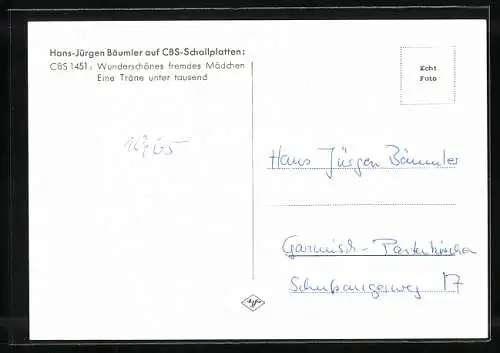 Hans-Jürgen Bäumler auf CBS-Schallplatten:
CBS 1451: Wunderschönes fremdes Mädchen
Eine Träne unter tausend
Echt
Foto
Hans Jürgen Bäumler
Garmisch-Partenkirchen
17